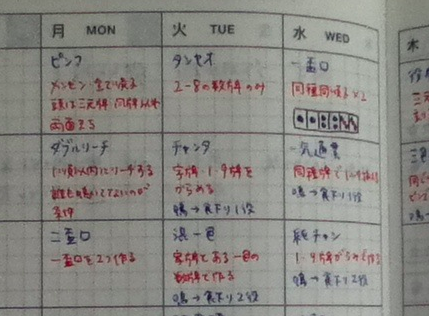 月 MON
火 TUE
水 WED
木
ピンフ
メンゼン 全て順子
頭は三元牌 以外
両面まち
タンヤオ
2-8の数牌のみ
一盃口
同種同順子×2
ダブルリーチ
1順以内にリーチする
誰も鳴いてないのが
条件
チャンタ
字牌・1・9牌を
からめる
鳴→食下り1役
一気通貫
同種牌で1-9
鳴→食下り1役
二盃口
一盃口を2つ作る
混一色
字牌とある一色の
数牌で作る
鳴→食下り2役
純チャン
1・9牌からめて作る
鳴→食下り2役